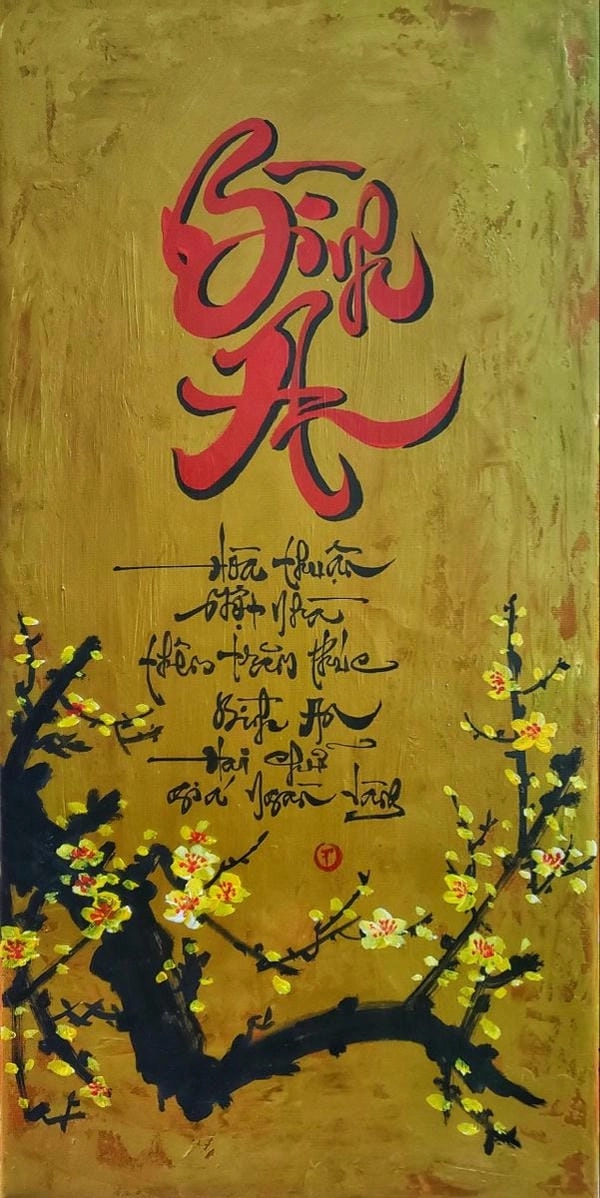 Bình
An
Hòa thuận
một nhà
thêm trăm phúc
Bình An
Hai chữ
giá ngàn vàng